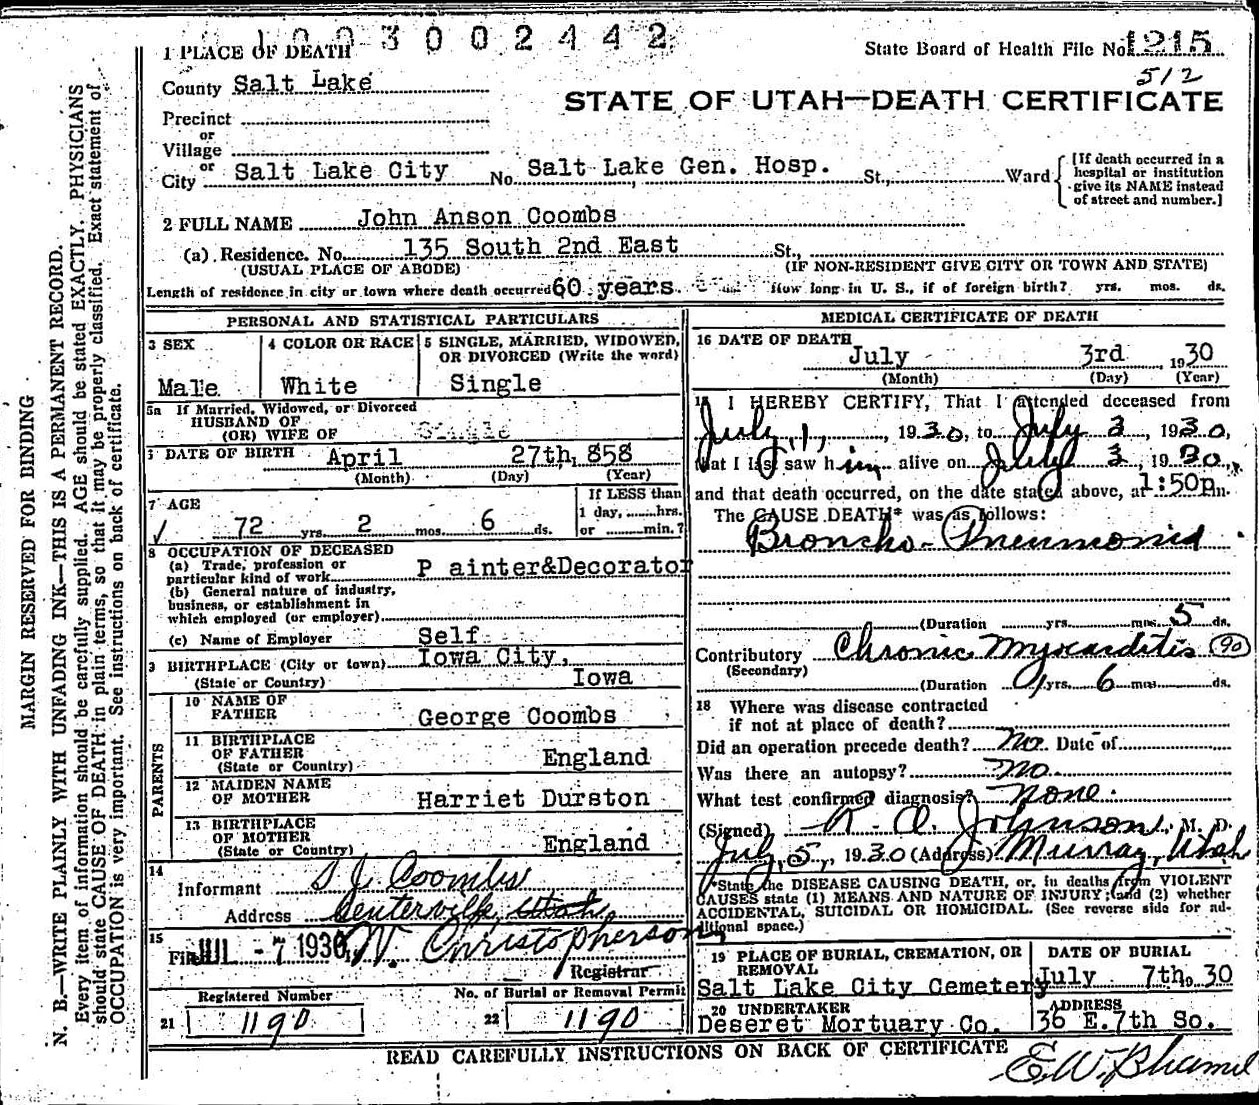 1003002442
1 PLACE OF DEATH
State Board of Health File No. 1215
512
County Salt Lake
STATE OF UTAH—DEATH CERTIFICATE
Precinct
or
Village
or
City Salt Lake City No. Salt Lake Gen. Hosp. St., Ward
[If death occurred in a
hospital or institution
give its NAME instead
of street and number.]
2 FULL NAME John Anson Coombs
(a) Residence. No. 135 South 2nd East St.,
(USUAL PLACE OF ABODE) (IF NON-RESIDENT GIVE CITY OR TOWN AND STATE)
Length of residence in city or town where death occurred 60 years How long in U. S., if of foreign birth? yrs. mos. ds.
PERSONAL AND STATISTICAL PARTICULARS
3 SEX
Male
4 COLOR OR RACE
White
5 SINGLE, MARRIED, WIDOWED,
OR DIVORCED (Write the word)
Single
5a If Married, Widowed, or Divorced
HUSBAND OF
(OR) WIFE OF Single
DATE OF BIRTH April 27th, 858
(Month) (Day) (Year)
7 AGE
72 yrs. 2 mos. 6 ds.
If LESS than
1 day, hrs.
or min.?
8 OCCUPATION OF DECEASED
(a) Trade, profession or
particular kind of work P ainter&Decorator
(b) General nature of industry,
business, or establishment in
which employed (or employer)
(c) Name of Employer Self
9 BIRTHPLACE (City or town) Iowa City,
(State or Country) Iowa
PARENTS
10 NAME OF
FATHER George Coombs
11 BIRTHPLACE
OF FATHER
(State or Country) England
12 MAIDEN NAME
OF MOTHER Harriet Durston
13 BIRTHPLACE
OF MOTHER
(State or Country) England
14
Informant S J Coombs
Address Centerville, Utah,
15
Filed JUL -7 1930 W. Christopherson
Registrar
Registered Number
21 1190
No. of Burial or Removal Permit
22 1190
MEDICAL CERTIFICATE OF DEATH
16 DATE OF DEATH
July 3rd, 1930
(Month) (Day) (Year)
17 I HEREBY CERTIFY, That I attended deceased from
July, 1, 1930, to July 3, 1930,
that I last saw him alive on July 3, 1930,
and that death occurred, on the date stated above, at 1:50p m.
The CAUSE DEATH* was as follows:
Broncho-Pneumonia
(Duration yrs. mos. 5 ds.
Contributory Chronic Myocarditis 90
(Secondary)
(Duration yrs. 6 mos. ds.
18 Where was disease contracted
if not at place of death?
Did an operation precede death? No. Date of
Was there an autopsy? No.
What test confirmed diagnosis? None.
(Signed) R. O. Johnson, M. D.
July, 5, 1930 (Address) Murray, Utah
*State the DISEASE CAUSING DEATH, or, in deaths from VIOLENT
CAUSES state (1) MEANS AND NATURE OF INJURY; and (2) whether
ACCIDENTAL, SUICIDAL OR HOMICIDAL. (See reverse side for ad-
ditional space.)
19 PLACE OF BURIAL, CREMATION, OR
REMOVAL
Salt Lake City Cemetery
DATE OF BURIAL
July 7th, 1930
20 UNDERTAKER
Deseret Mortuary Co.
ADDRESS
36 E. 7th So.
READ CAREFULLY INSTRUCTIONS ON BACK OF CERTIFICATE
MARGIN RESERVED FOR BINDING
N. B.—WRITE PLAINLY WITH UNFADING INK—THIS IS A PERMANENT RECORD.
Every item of information should be carefully supplied. AGE should be stated EXACTLY. PHYSICIANS
should state CAUSE OF DEATH in plain terms, so that it may be properly classified. Exact statement of
OCCUPATION is very important. See instructions on back of certificate.